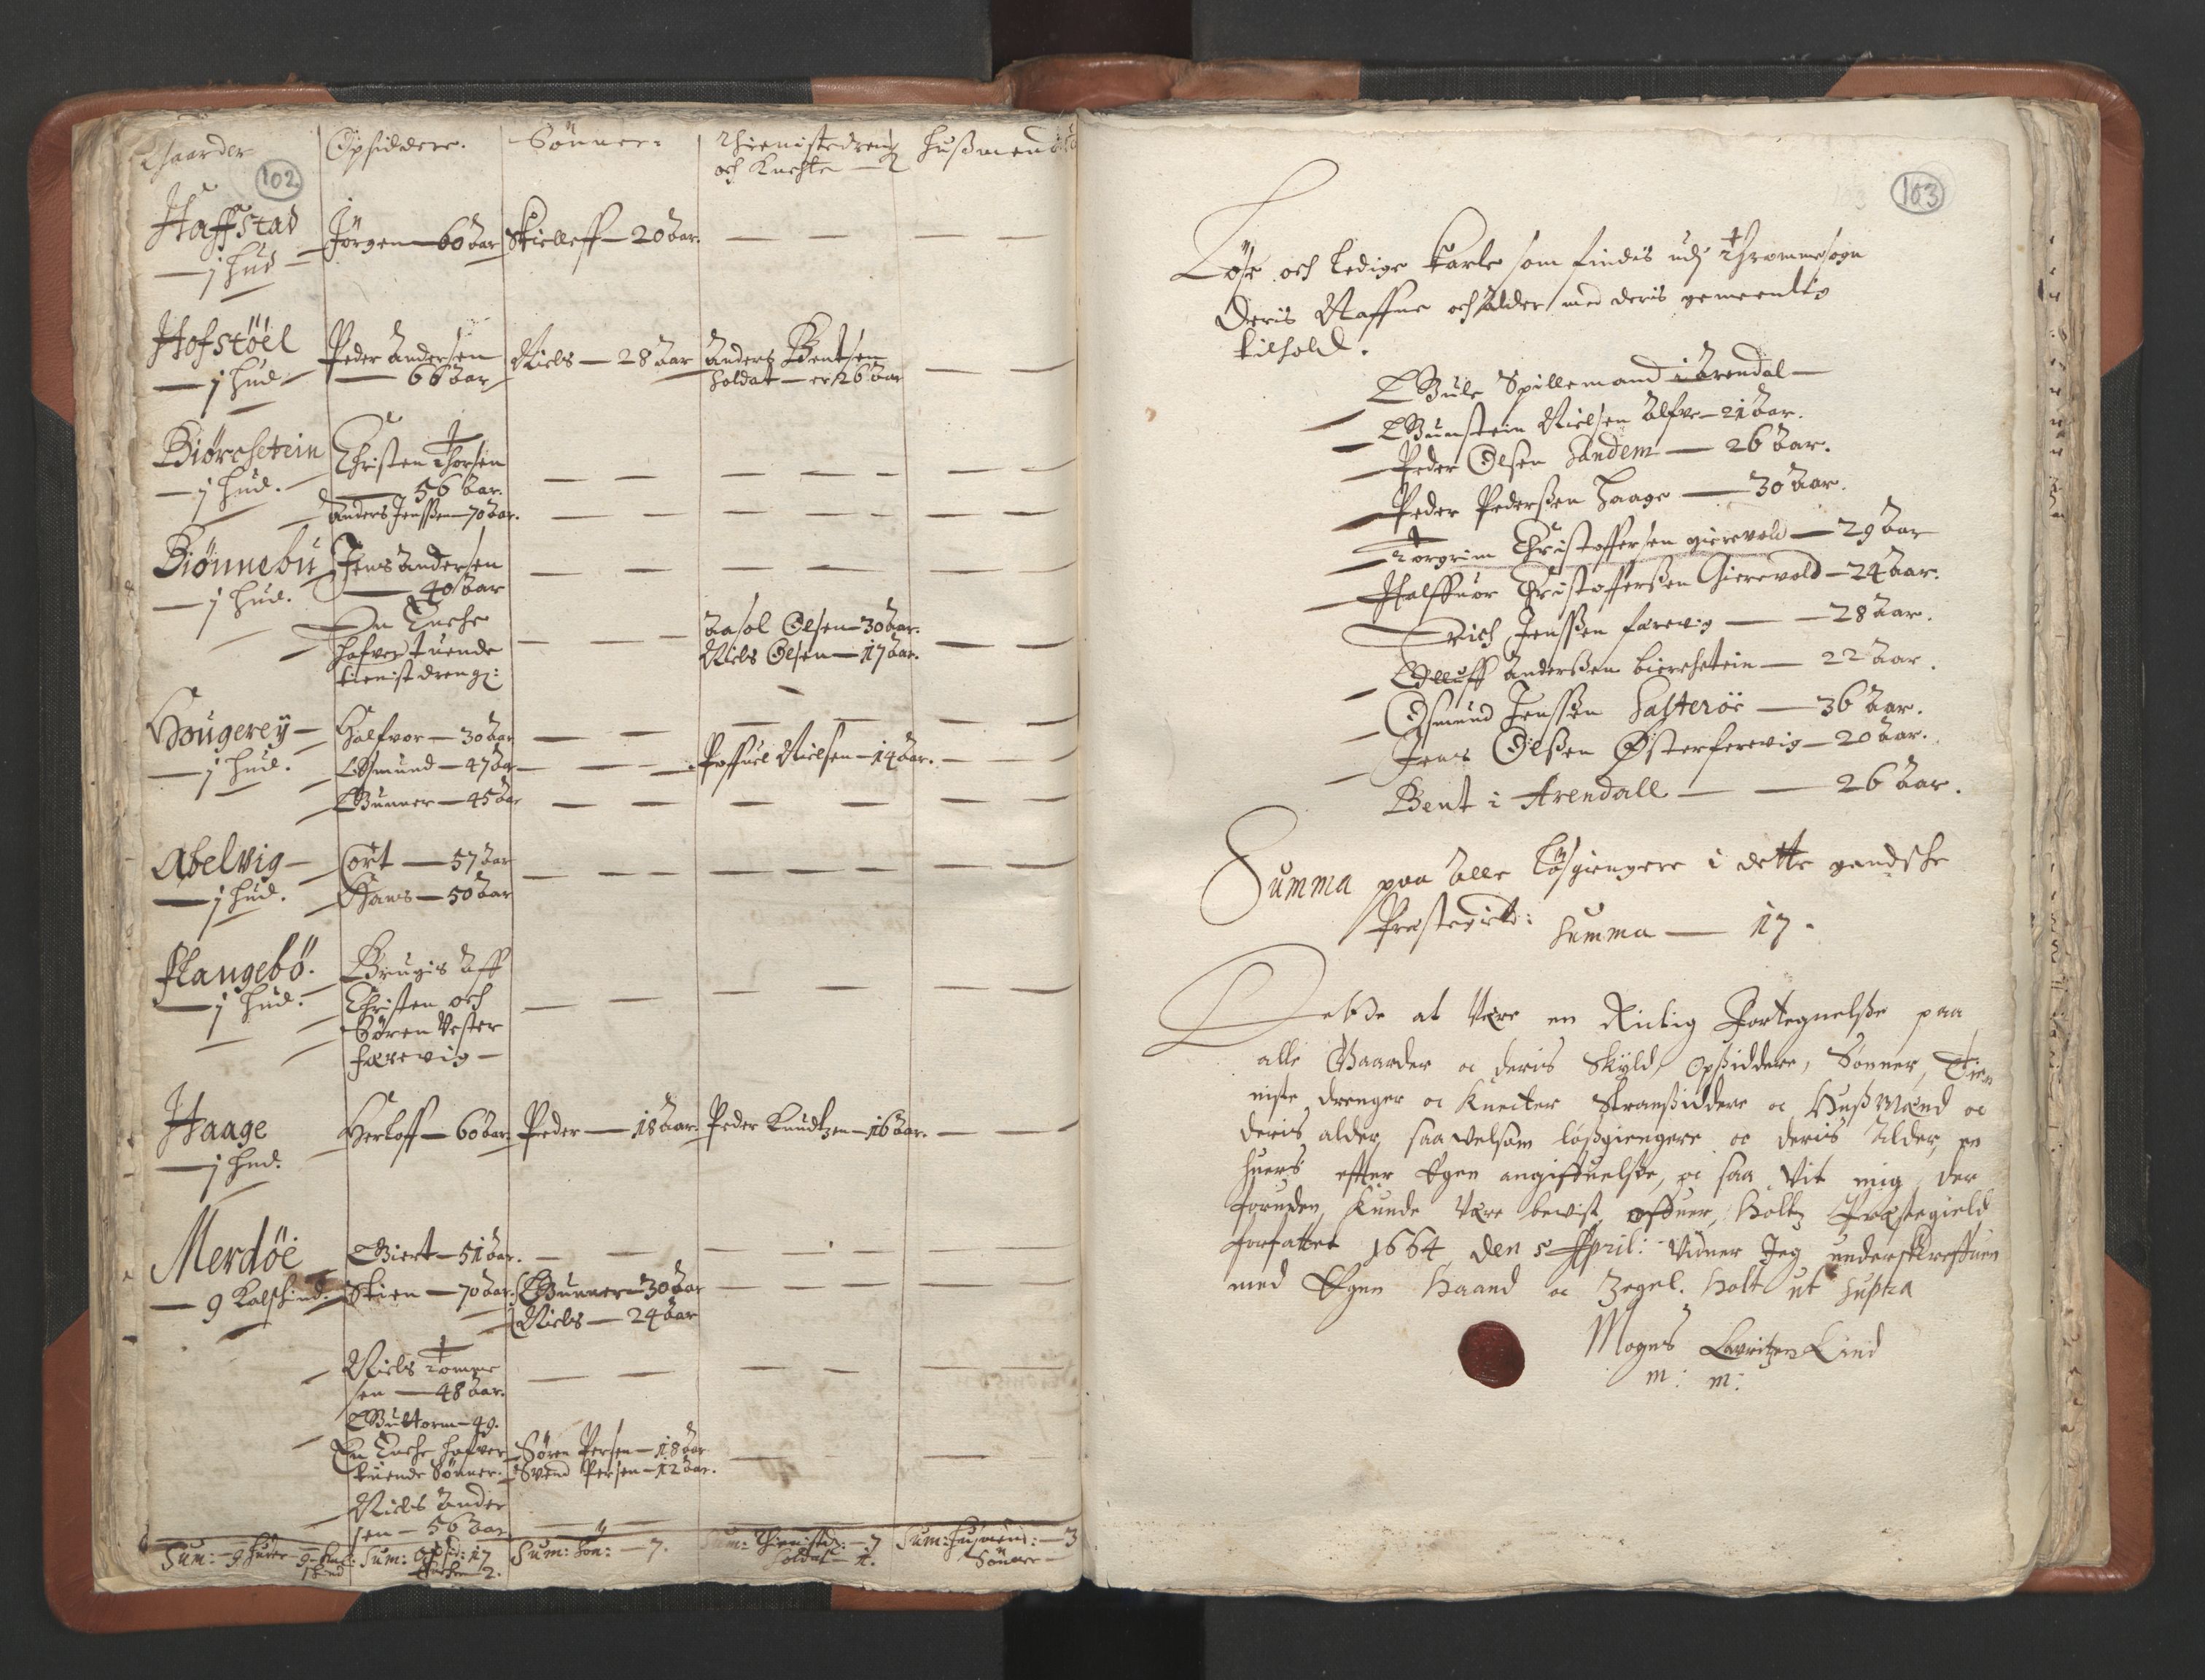 Gaarder
Opsiddere.
Sönner:
Thienistedreng
och Knechte —
Hussmend
102
Haffstad
— j hud —
Jörgen — 60 Aar
Skielleff — 20 Aar.
Hofstöel
— j hud
Peder Andersen
— 66 Aar
Niels — 28 Aar
Anders Bentsen
Soldat — er 26 Aar
Biörchstein
— j hud.
Christen Thorsen
— 56 Aar.
Anders Jenssen — 70 Aar.
Biönnebu
— j hud.
Jens Andersen
— 40 Aar
En Enche
hafver tuende
tienist dreng:
Aasol Olsen — 30 Aar.
Niels Olsen — 17 Aar.
Hougereÿ —
— j hud.
Halfvor — 30 Aar
Gunner — 45 Aar
Nielsen — 14 Aar.
Abelvig —
— j hud.
Cort — 57 Aar
Hans — 50 Aar
flangebö.
— j hud.
Brugis Aff
Christen och
Sören Vester
færevig —
Haage
— j hud.
Herloff — 60 Aar.
Peder — 18 Aar.
Peder Knudtzen — 16 Aar.
Merdöe
— 9 Kalfskind.
Giert — 51 Aar.
Skien — 70 Aar.
Gunner — 30 Aar
Niels — 24 Aar
Niels Tomme
sen — 48 Aar.
Guttorm — 49.
En Enche hafver
tuende Sönner.
Sören Persen — 18 Aar
Svend Persen — 12 Aar.
Niels Ander
sen — 56 Aar
Sum: — 9 huder 9 — Kal:
skind
Sum: Opsid: 17
Encher 2.
Sum: Sön: — 7.
Sum: Thienisted: — 7
Soldat — 1.
Sum: Husmend: — 3
Sönner —
103
Löse och Ledige Karle som findis udj Thrommesogn
deris Naffne och Alder med deris gemeenlig
tilhold.
Gule Spillemand i Arendal —
Gunstein Nielsen Alfve — 21 Aar.
Peder Olsen Sandem — 26 Aar.
Peder Pederssen Haage — 30 Aar.
Torgrim Christoffersen gierevold — 29 Aar
Halffuor Christofferssen Gierevold — 24 Aar.
Erich Jenssen færevig — — 28 Aar.
Anderssen bierchstein — 22 Aar.
Osmund Jenssen Salteröe — 36 Aar.
Jens Olssen Österferevig — 20 Aar.
Bent i Arendall — — 26 Aar.
Summa paa Alle Lösgiengere i dette gandsche
Prestegield: Summa — 17.
Dette at Være en Rictig Fortegnelsse paa
alle Gaarder oc deris Skyld, Opssiddere, Sönner, Tien
niste drenger oc Knecter Stranssiddere oc Huss Mænd oc
deris alder, saavelsom lössgiengere oc deris Alder, en
huers efter Egen angiffuelsse, oc saa Vit mig der
foruden Kunde Være bevist, offuer, Holtz Præstegield
forfattet 1664 den 5 April: Vidner Jeg underskreffuen
med Egen Haand oc Zegel. Holt ut supra
Mogns Lauritzen Lind
m: m: